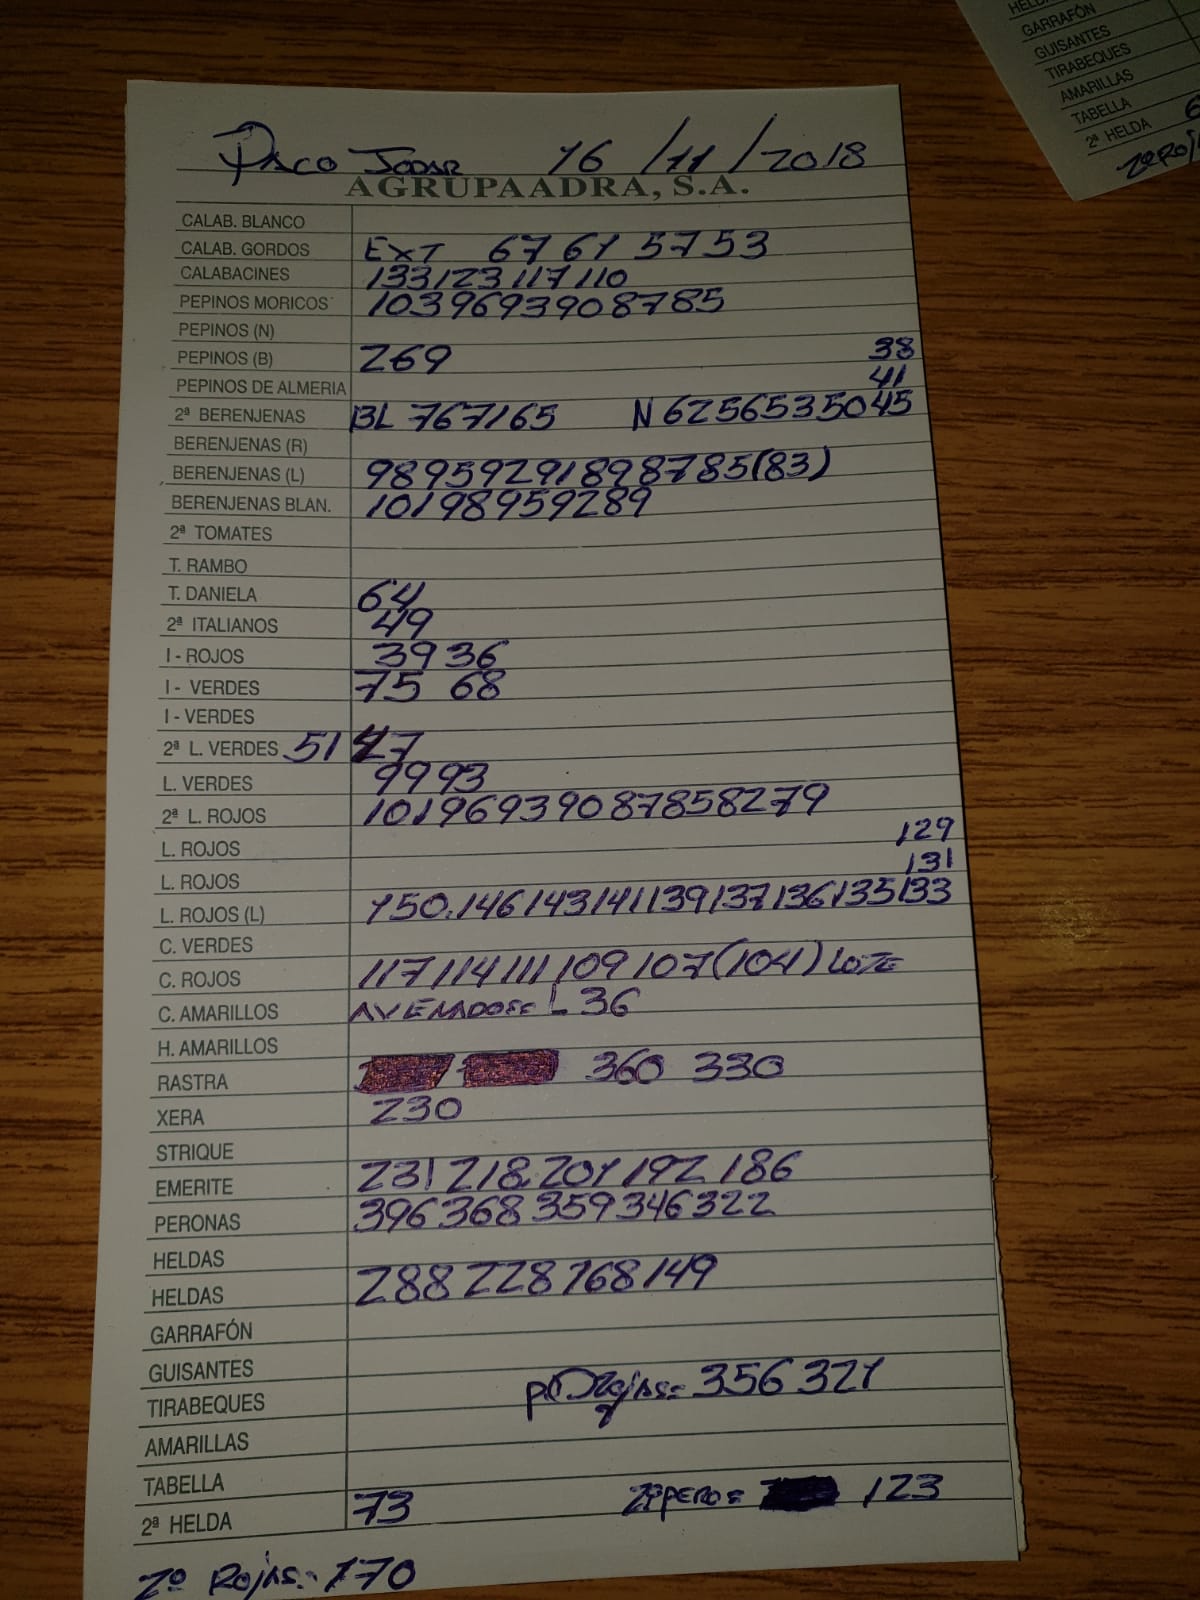 HELDAS
GARRAFÓN
GUISANTES
TIRABEQUES
AMARILLAS
TABELLA 6
2ª HELDA
2ª ROJ
PACO JODAR 16/11/2018
AGRUPAADRA, S.A.
CALAB. BLANCO
CALAB. GORDOS EXT 67 61 57 53
CALABACINES 133 123 117 110
PEPINOS MORICOS 103 96 93 90 87 85
PEPINOS (N)
PEPINOS (B) 269 38
PEPINOS DE ALMERIA 41
2ª BERENJENAS BL 76 71 65 N 62 56 53 50 45
BERENJENAS (R)
BERENJENAS (L) 98 95 92 91 89 87 85 (83)
BERENJENAS BLAN. 101 98 95 92 89
2ª TOMATES
T. RAMBO
T. DANIELA 64
2ª ITALIANOS 49
I - ROJOS 39 36
I - VERDES 75 68
I - VERDES
2ª L. VERDES 51 47
L. VERDES 99 93
2ª L. ROJOS 101 96 93 90 87 85 82 79
L. ROJOS 129
L. ROJOS 131
L. ROJOS (L) 150. 146 143 141 139 137 136 135 133
C. VERDES
C. ROJOS 117 114 111 109 107 (104) LOTE
C. AMARILLOS L 36
H. AMARILLOS
RASTRA 360 330
XERA 230
STRIQUE
EMERITE 231 218 201 192 186
PERONAS 396 368 359 346 322
HELDAS
HELDAS 288 228 168 149
GARRAFÓN
GUISANTES
TIRABEQUES Rojas= 356 321
AMARILLAS
TABELLA
2ª HELDA 73 2ª PERO= 123
2ª ROJAS.- 170